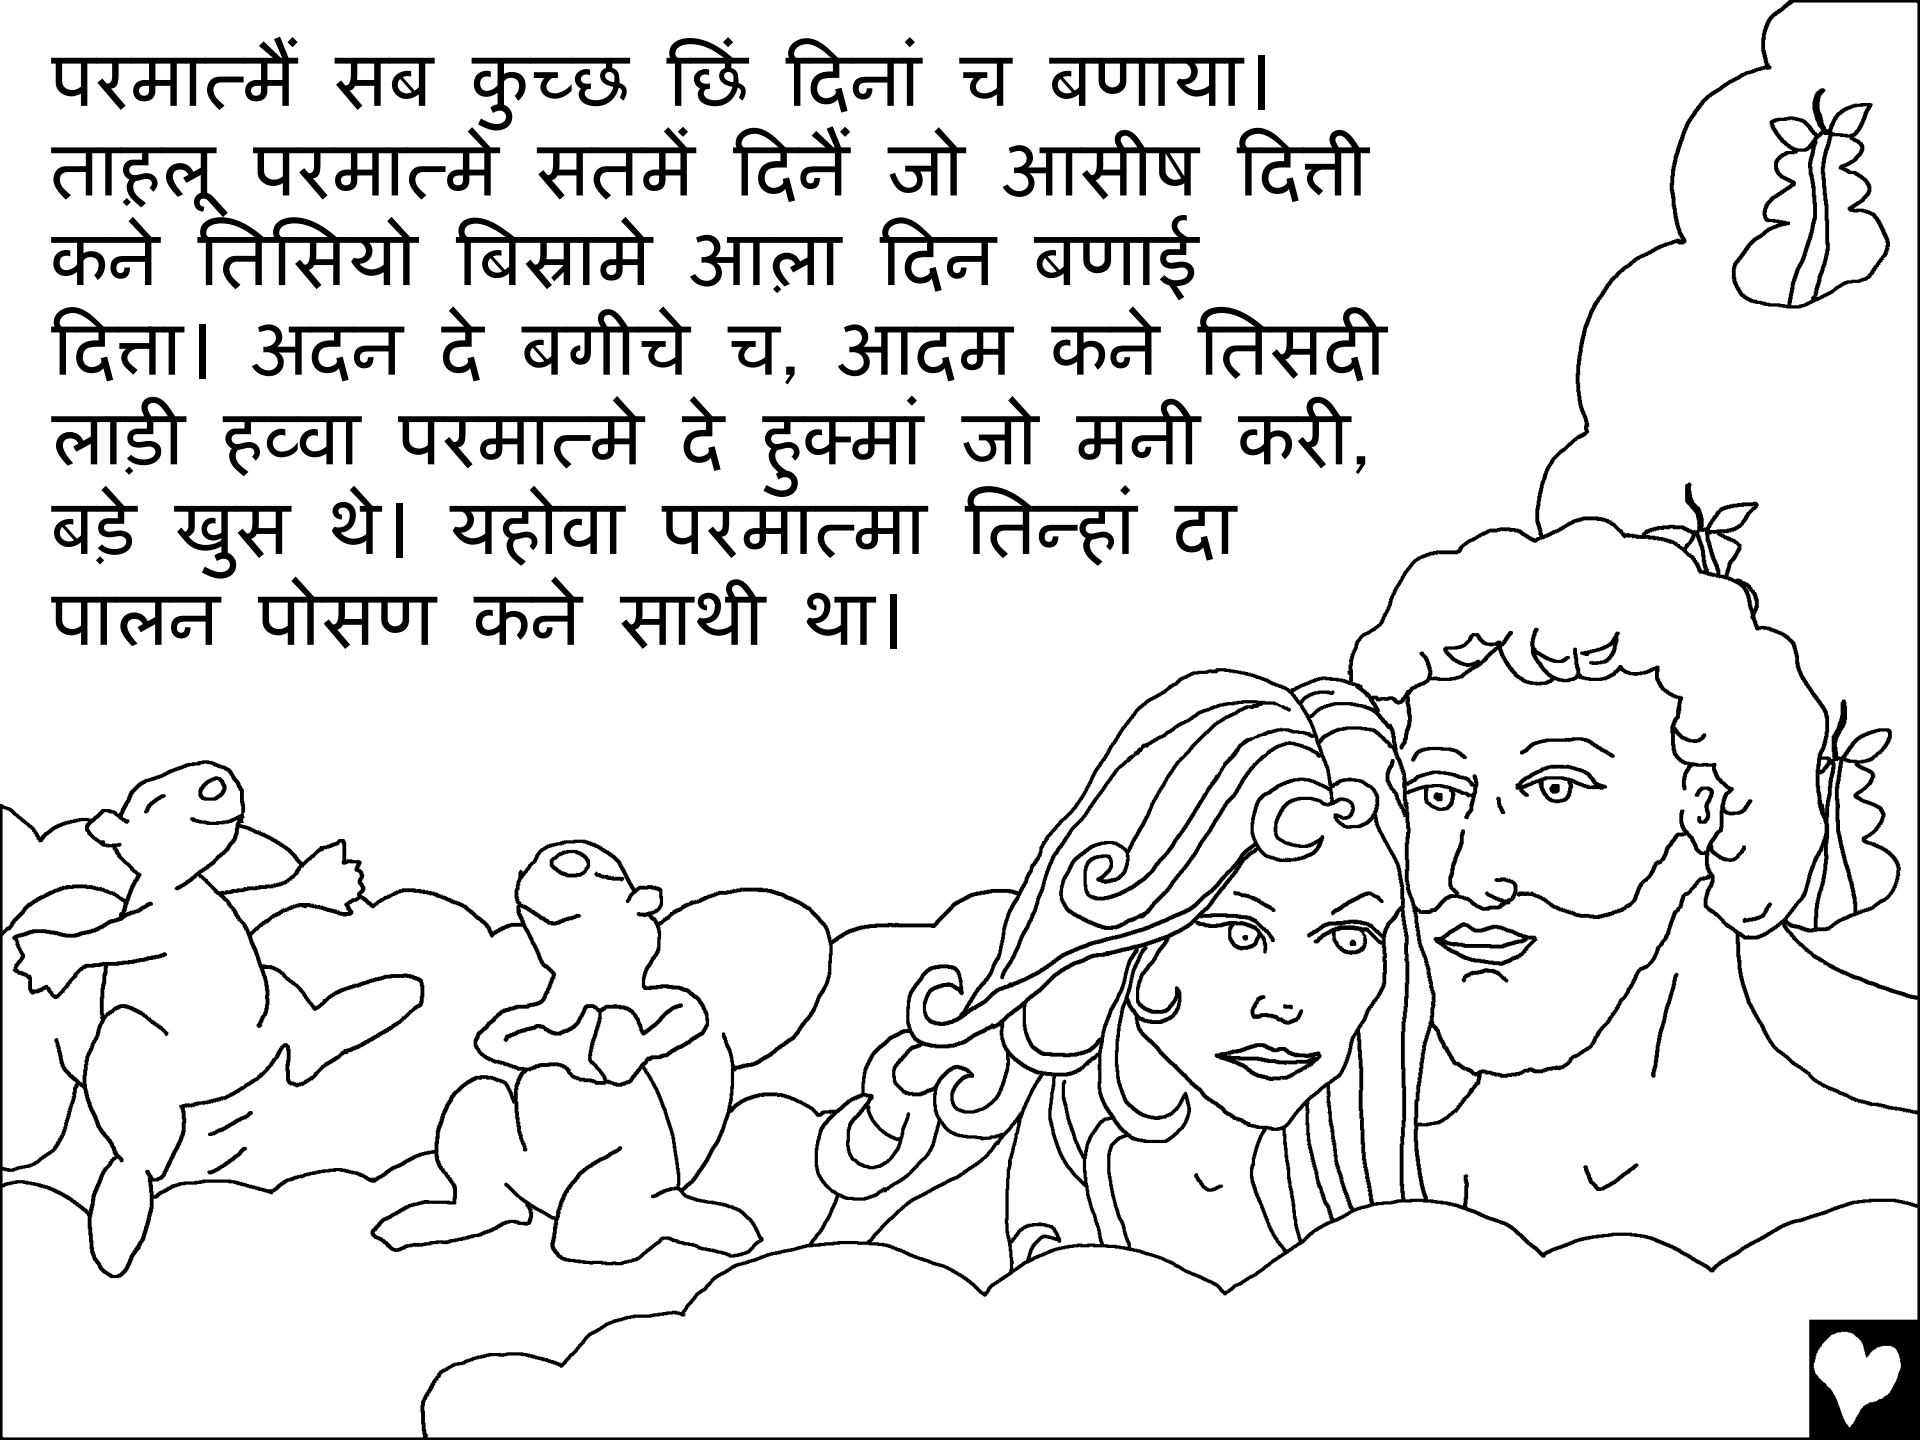 परमात्मैं सब कुच्छ छिं दिनां च बणाया।
ताह़लू परमात्मे सतमें दिनैं जो आसीष दित्ती
कने तिसियो बिस्रामे आल़ा दिन बणाई
दित्ता। अदन दे बगीचे च, आदम कने तिसदी
लाड़ी हव्वा परमात्मे दे हुक्मां जो मनी करी,
बड़े खुस थे। यहोवा परमात्मा तिन्हां दा
पालन पोसण कने साथी था।